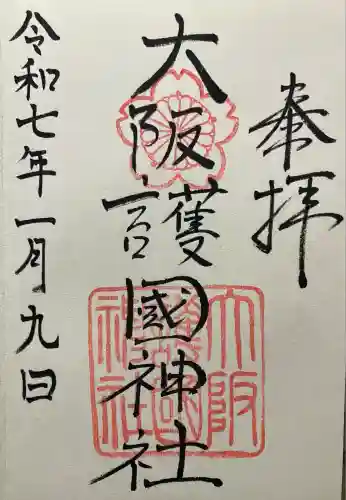 奉拝
大阪護國神社
令和七年一月九日
大阪護國神社